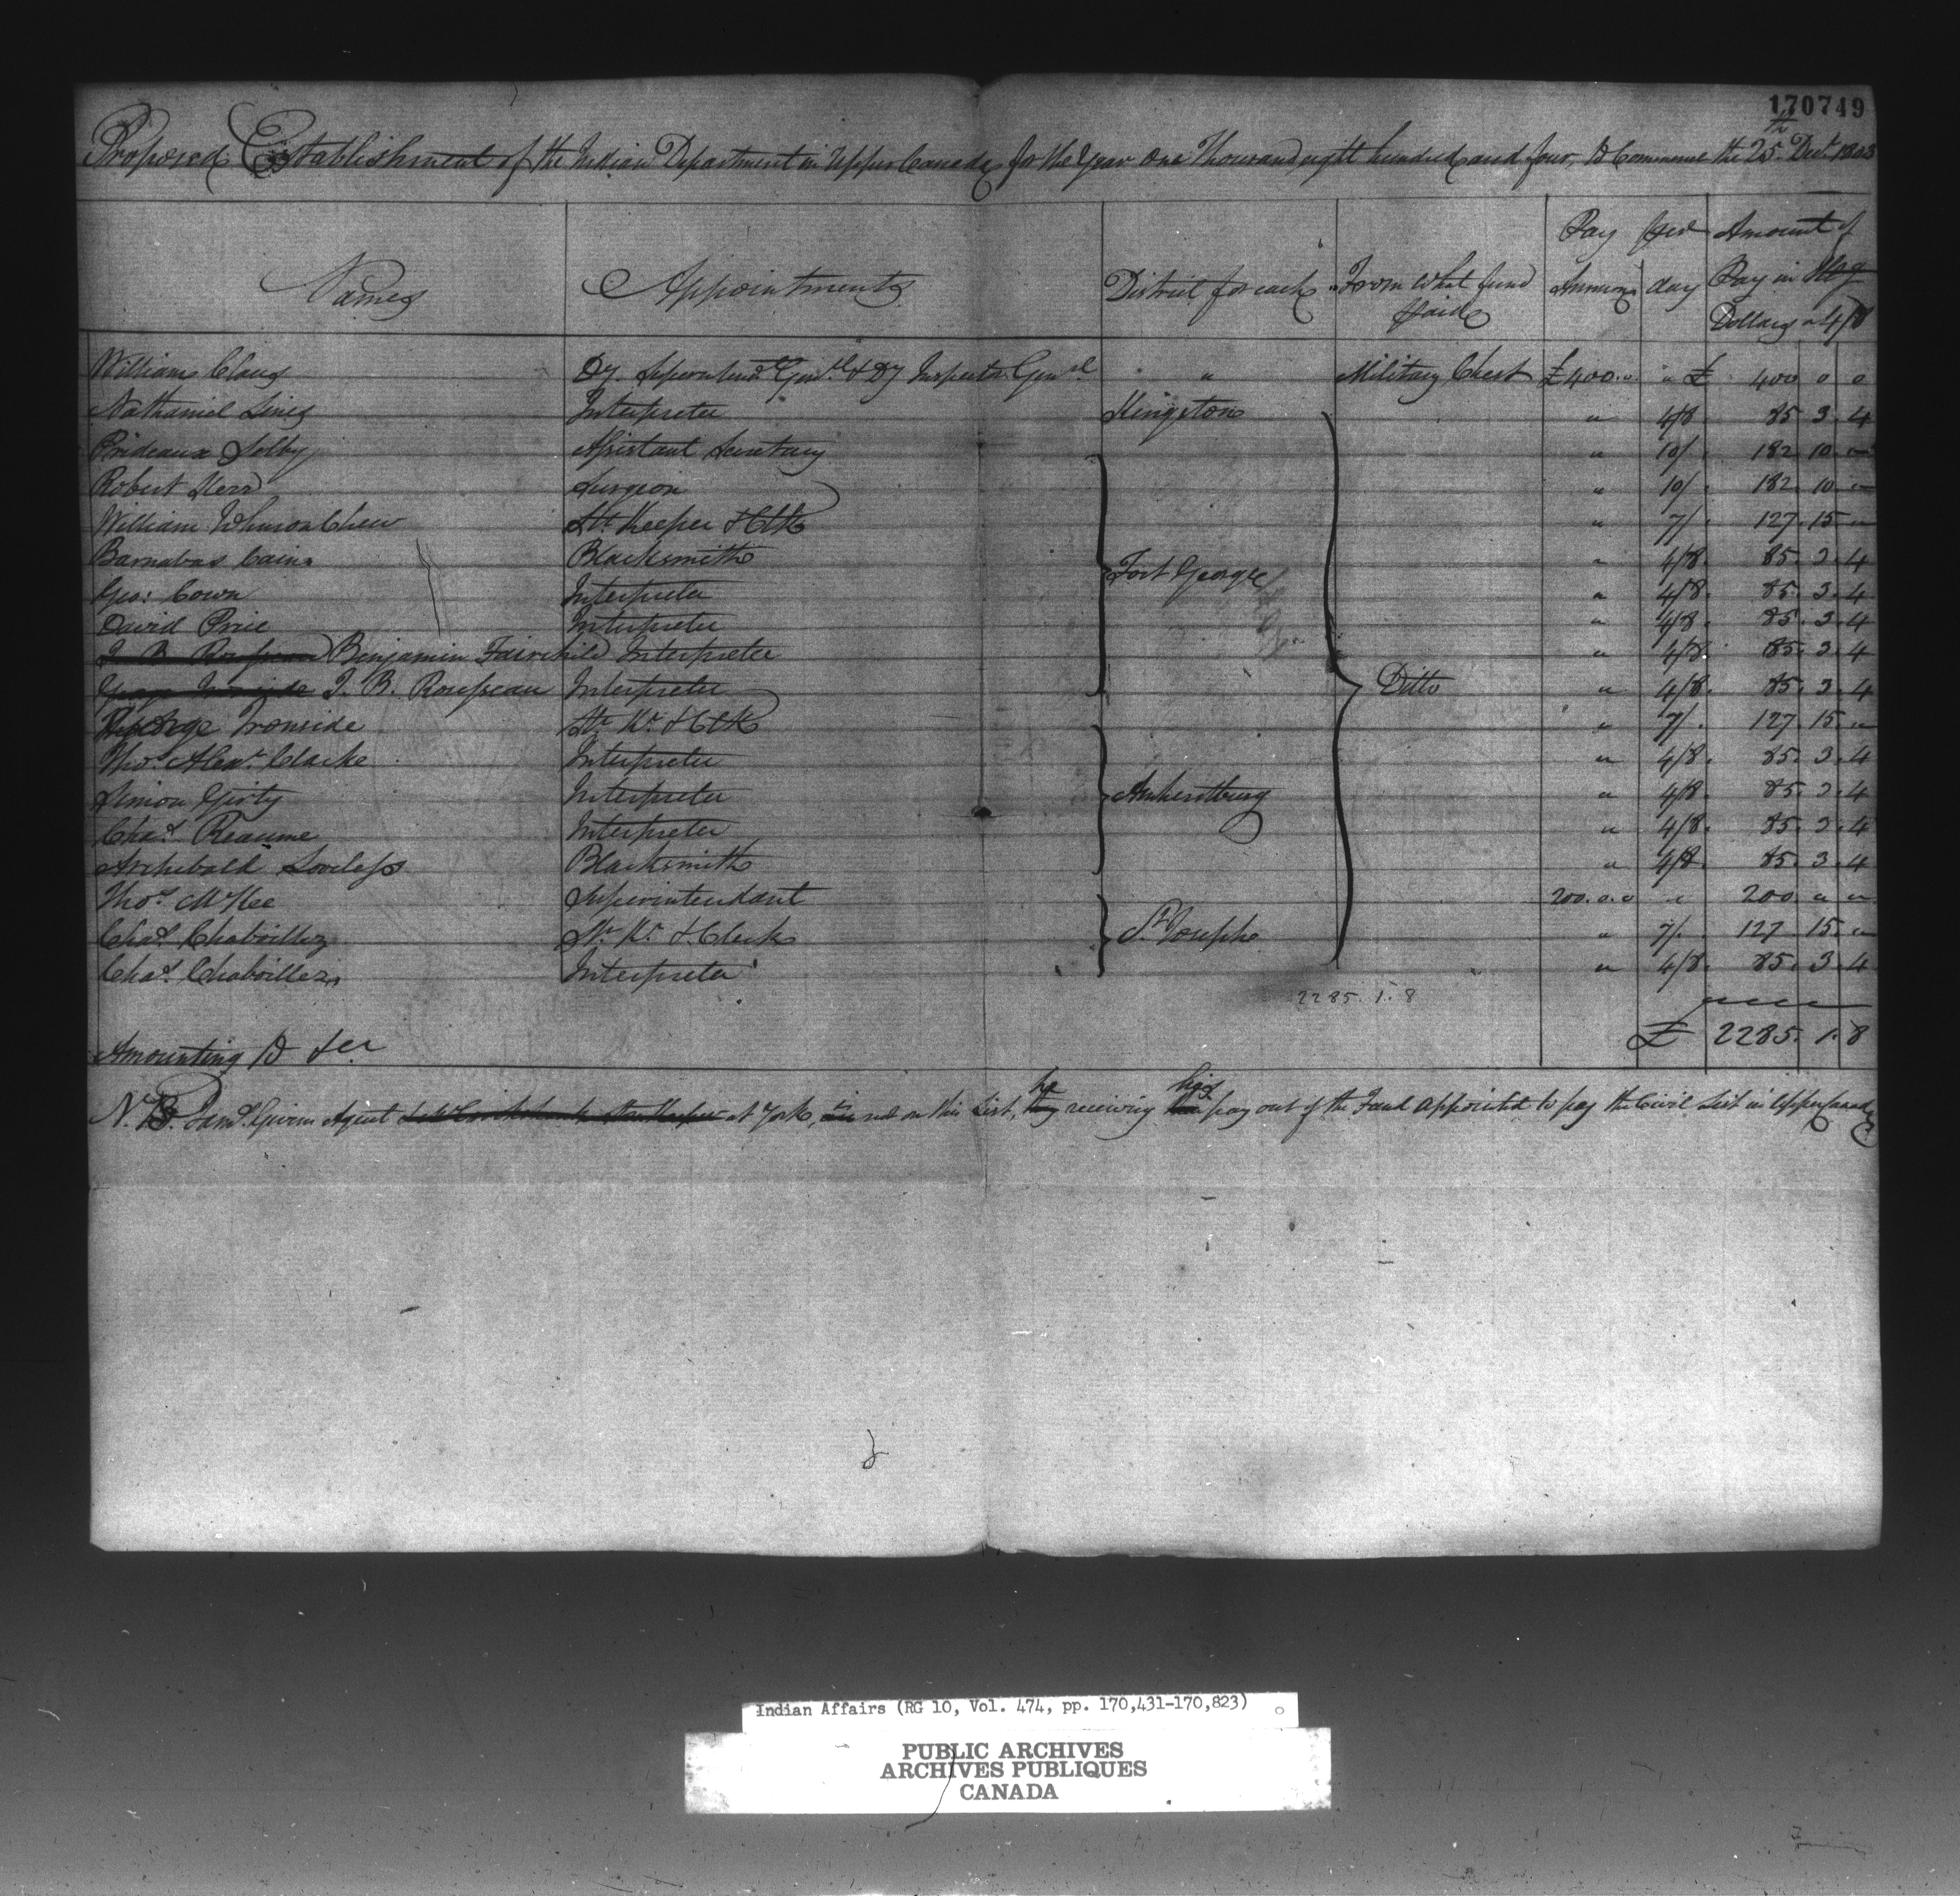 170749
Proposed Establishment of the Indian Department in Upper Canada for the Year One Thousand eight hundred and four, to Commence the 25th Decr. 1803
Names Appointments District for each From what fund paid Pay per Annum day Amount of Pay in Stg Dollars a 4/8
William Claus Dy. Superintendt. Genl. & Dy Inspector Genl. " " Military Chest £400.. " £ 400 0 0
Nathaniel Lines Interpreter Kingston " 4/8 85 3 4
Prideaux Selby Assistant Secretary " 10/ 182 10 "
Robert Kerr Surgeon " 10/ 182 10 "
William Johnson Chew St. Keeper & Clk " 7/ 127 15 "
Barnabas Cain Blacksmith Fort George " 4/8 85 3 4
Geo: Cown Interpreter " 4/8 85 3 4
David Price Interpreter " 4/8 85 3 4
J. B. Rousseau Benjamin Fairchild Interpreter " 4/8 85 3 4
George Ironside J. B. Rousseau Interpreter Ditto " 4/8 85 3 4
George Ironside St. Kr. & Clk " 7/ 127 15 "
Thos. Alexr. Clarke Interpreter " 4/8 85 3 4
Simon Girty Interpreter Amherstburg " 4/8 85 3 4
Chas. Reaume Interpreter " 4/8 85 3 4
Archibald Loveless Blacksmith " 4/8 85 3 4
Thos. McKee Superintendant 200.0.0 " 200 " "
Chas. Chaboillez St. Kr. & Clerk St. Josephs " 7/ 127 15 "
Chas. Chaboillez Interpreter " 4/8 85 3 4
2285. 1. 8
Amounting to Ster £ 2285. 1. 8
N.B. Jams. Givins Agent at York, not on this List, they he receiving his pay out of the Fund appointed to pay the Civil List in Upper Canada
Indian Affairs (RG 10, Vol. 474, pp. 170,431-170,823)
PUBLIC ARCHIVES
ARCHIVES PUBLIQUES
CANADA